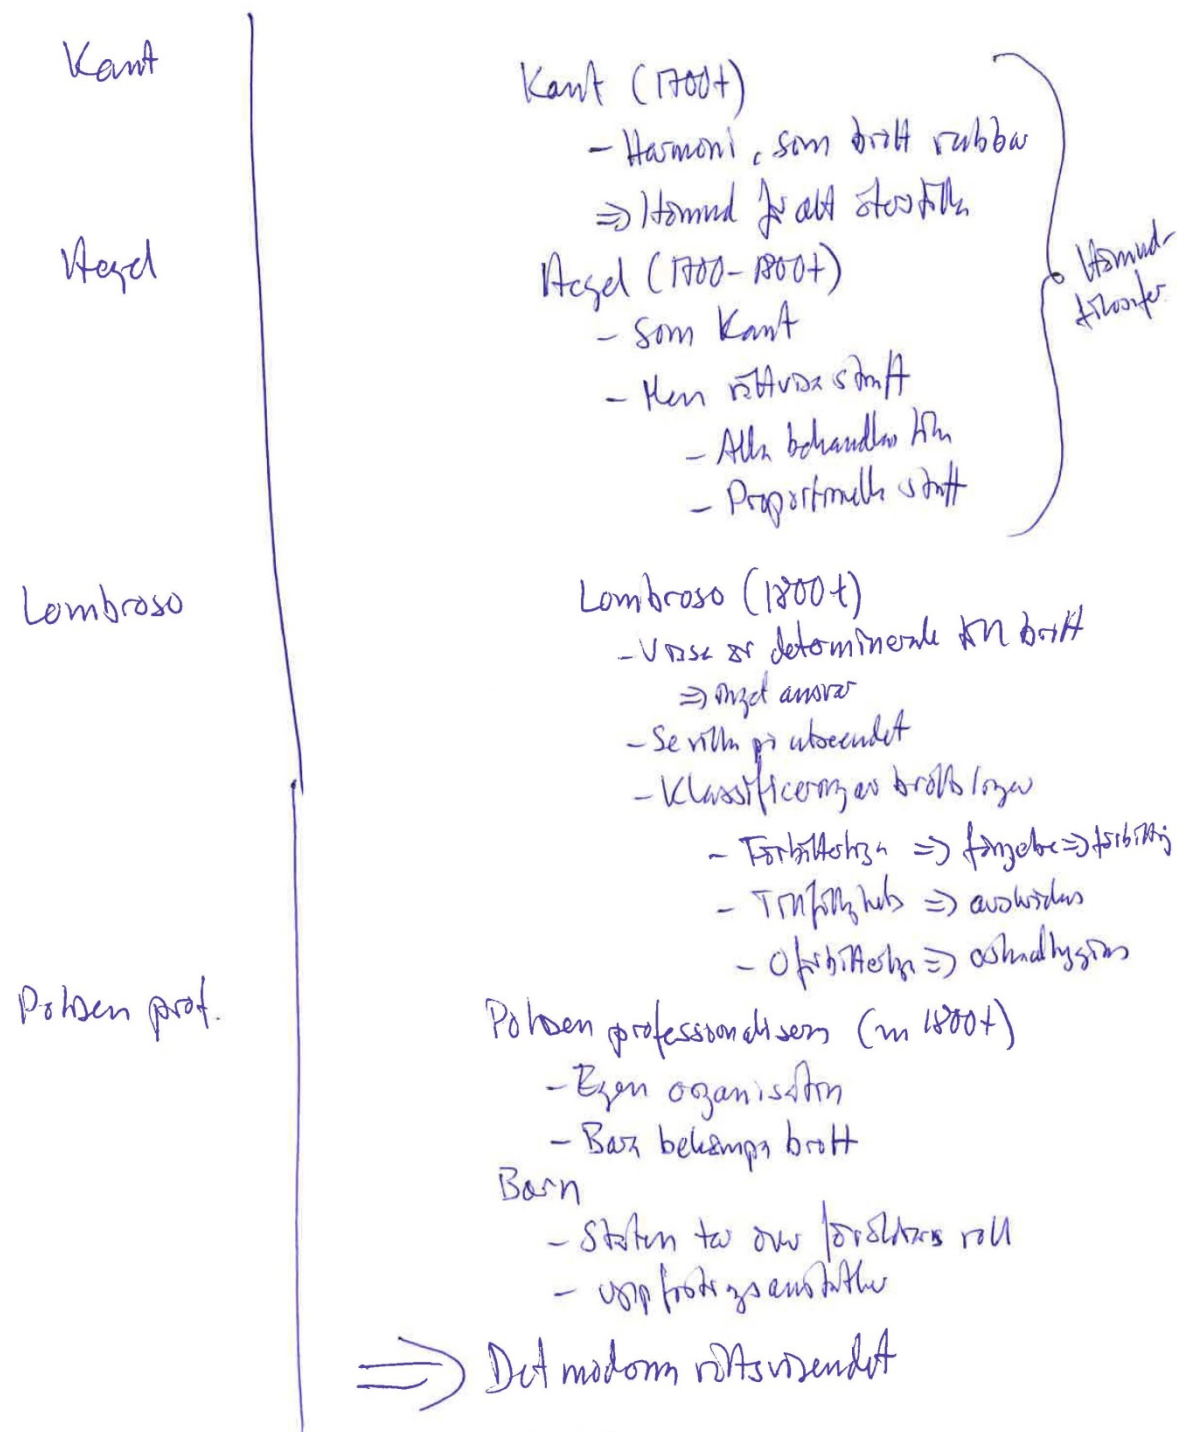 Kant
Kant (1700t)
- Harmoni, som brott rubbar
=> Hämnd för att återställa
Hegel
Hegel (1700-1800t)
- Som Kant
- Men rättvisa straff
- Alla behandlas lika
- Proportionella straff
Hämnd-
filosofer
Lombroso
Lombroso (1800t)
- Vissa är determinerade till brott
=> inget ansvar
- Se villn på utseendet
- Klassificering av brottslingar
- Förbätterliga => fängelse => förbättring
- Tillfällighets => avskräckas
- Oförbätterliga => oskadliggöras
Polisen prof.
Polisen professionaliseras (m 1800t)
- Egen organisation
- Bara bekämpa brott
Barn
- Staten tar över förälderns roll
- uppfostringsanstalter
=> Det moderna rättsväsendet